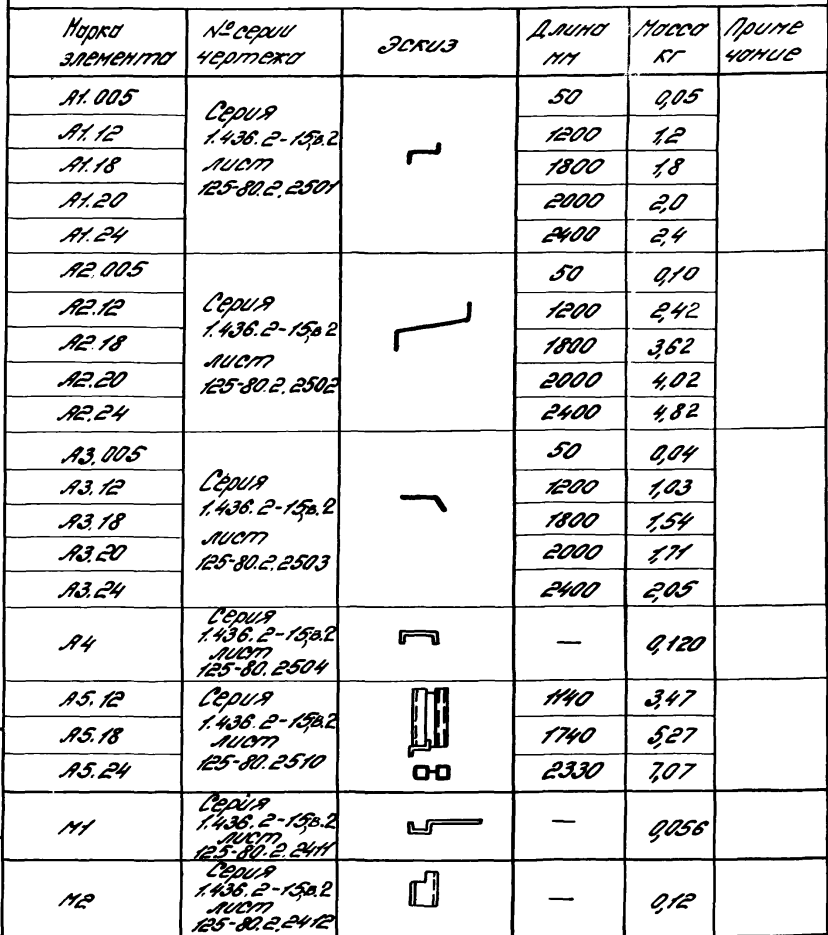 Марка элемента | № серии чертежа | Эскиз | Длина мм | Масса кг | Приме чание
А1.005 | Серия 1.436.2-15,в.2 лист 125-80.2.2501 | 50 | 0,05
А1.12 | 1200 | 1,2
А1.18 | 1800 | 1,8
А1.20 | 2000 | 2,0
А1.24 | 2400 | 2,4
А2.005 | Серия 1.436.2-15,в.2 лист 125-80.2.2502 | 50 | 0,10
А2.12 | 1200 | 2,42
А2.18 | 1800 | 3,62
А2.20 | 2000 | 4,02
А2.24 | 2400 | 4,82
А3.005 | Серия 1.436.2-15,в.2 лист 125-80.2.2503 | 50 | 0,04
А3.12 | 1200 | 1,03
А3.18 | 1800 | 1,54
А3.20 | 2000 | 1,71
А3.24 | 2400 | 2,05
А4 | Серия 1.436.2-15,в.2 лист 125-80.2504 | — | 0,120
А5.12 | Серия 1.436.2-15,в.2 лист 125-80.2510 | 1140 | 3,47
А5.18 | 1740 | 5,27
А5.24 | 2330 | 7,07
М1 | Серия 1.436.2-15,в.2 лист 125-80.2.2411 | — | 0,056
М2 | Серия 1.436.2-15,в.2 лист 125-80.2.2412 | — | 0,12